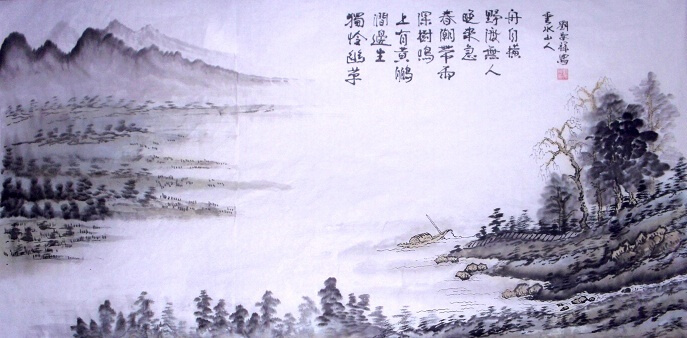 獨憐幽草
澗邊生
上有黃鸝
深樹鳴
春潮帶雨
晚來急
野渡無人
舟自橫
水山人
劉